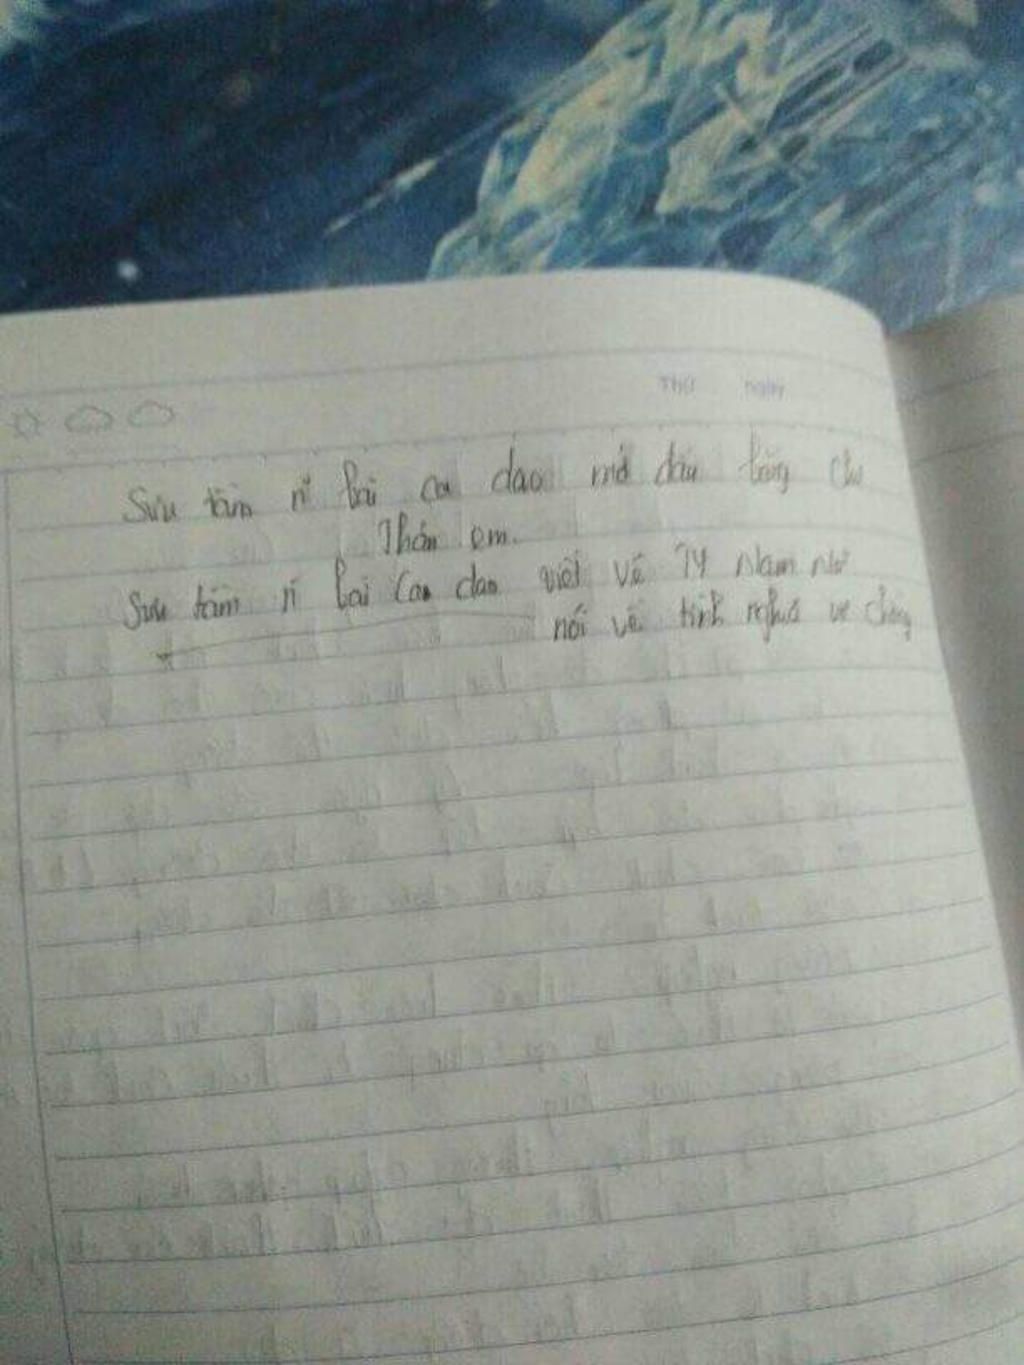 Thứ ngày
Sưu tầm n~ bài ca dao mở đầu bằng chữ
Thân em.
Sưu tầm n~ bài Cao dao viết về TY Nam nữ
nói về tình nghĩa vợ chồng